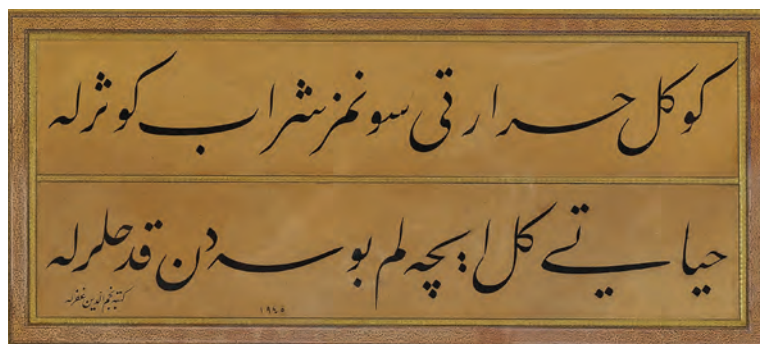 كوكل حرارتی سونمز شراب كوثرله
حیاتی كل ایچه لم بوسه دن قدحلرله
كتبه نجم الدین غفرله